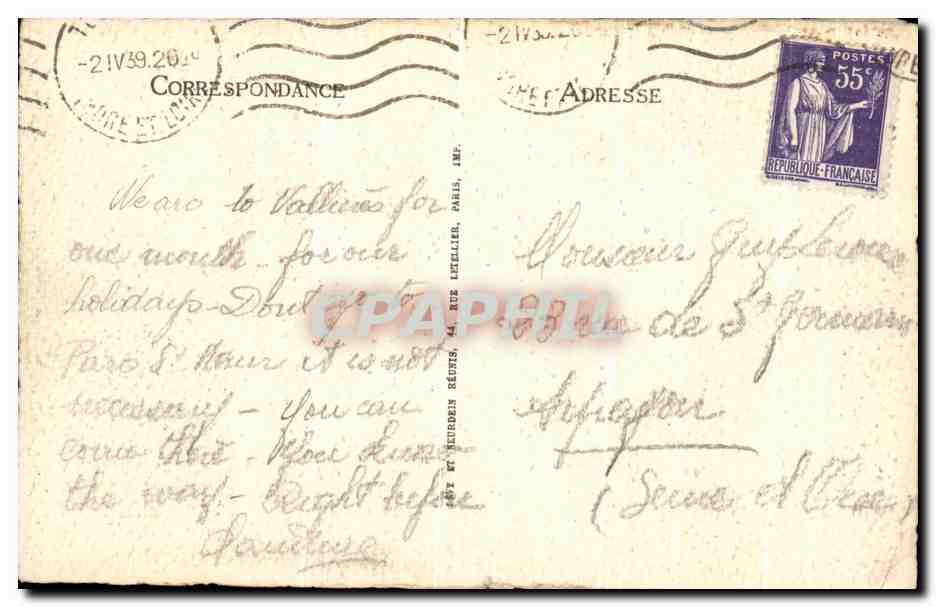 -2 IV 39. 20
-2 IV 39. 20
CORRESPONDANCE
ADRESSE
POSTES
55c
REPUBLIQUE-FRANÇAISE
INDRE ET LOIRE
We are to Vallières for
one month - for our
holidays - Dont go to
Parc St Maur it is not
necessary - You can
come there - You know
the way - Right before
LEVY ET NEURDEIN RÉUNIS, 44, RUE LETELLIER, PARIS, IMP.
Monsieur Guy
rue de St Germain
Arpajon
(Seine et Oise)
CPAPHIL